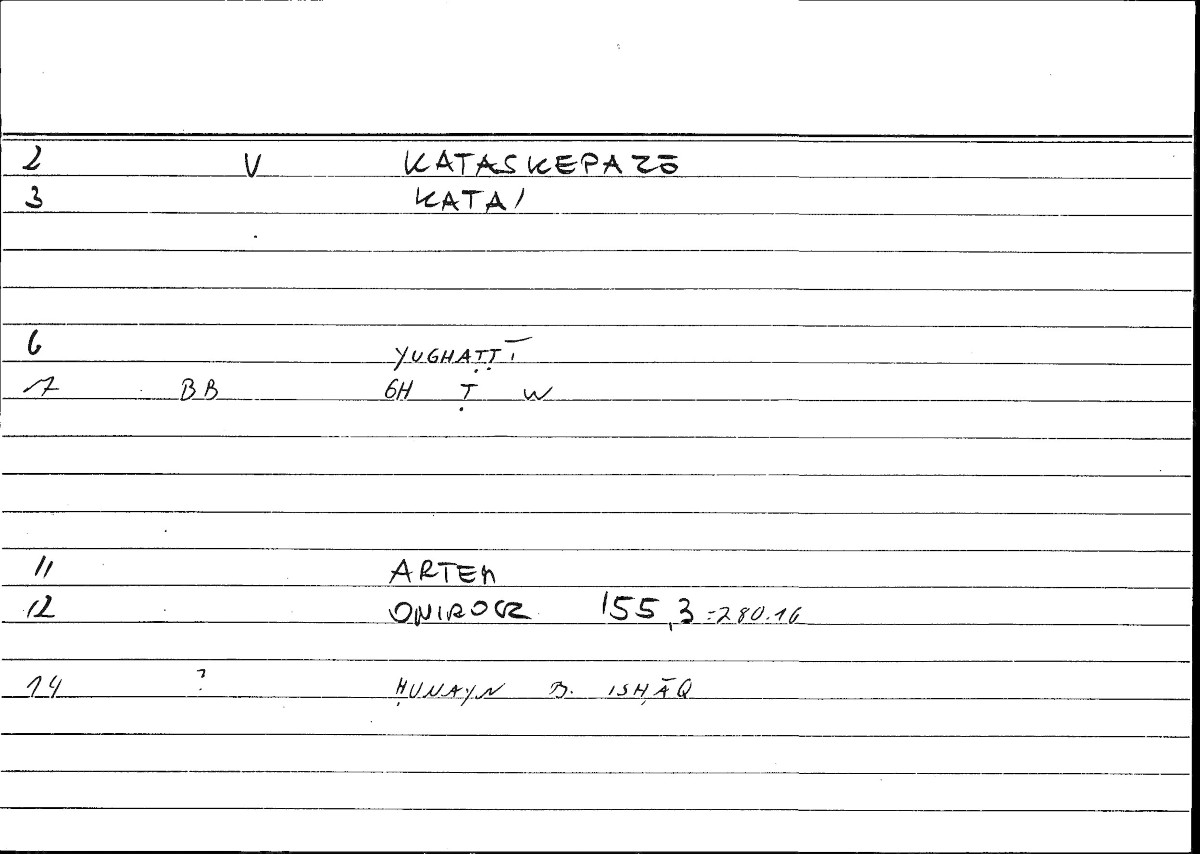 2 V KATASKEPAZŌ
3 KATA/
6 YUGHAṬṬĪ
7 BB GH Ṭ W
11 ARTEM
12 ONIROCR 155,3 =280.16
14 ? ḤUNAYN B. ISḤĀQ